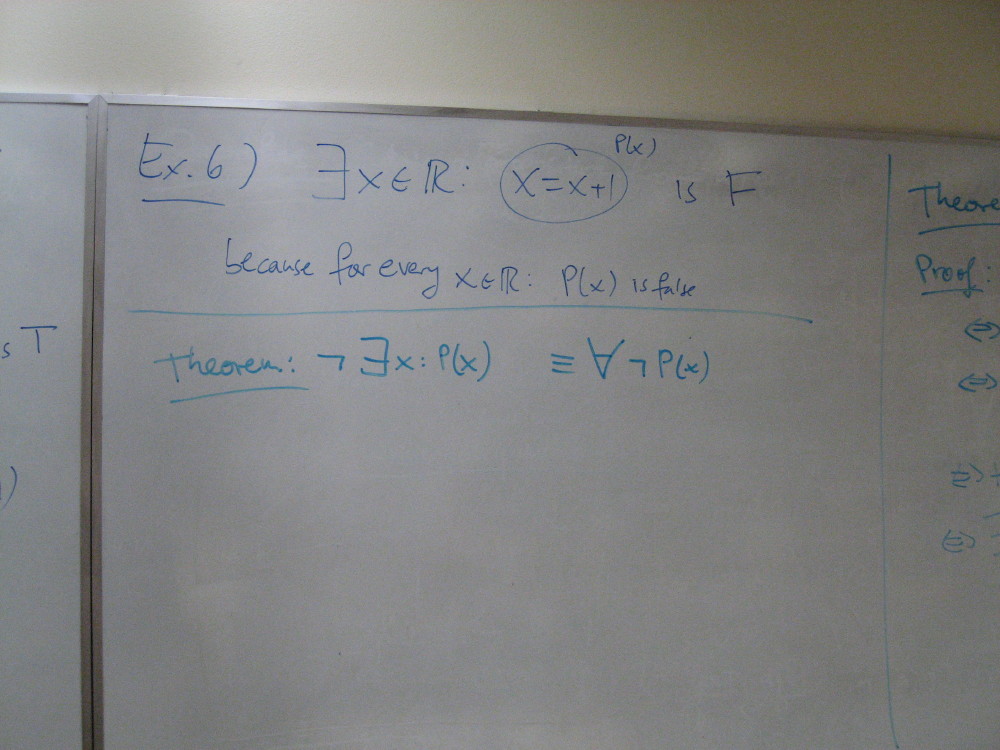 s T
)
Ex. 6) ∃ x ∈ ℝ: x = x+1 is F
P(x)
because for every x ∈ ℝ: P(x) is false
Theorem: ¬ ∃ x: P(x) ≡ ∀ ¬ P(x)
Theore
Proof:
⇔
⇔
⇔
⇔